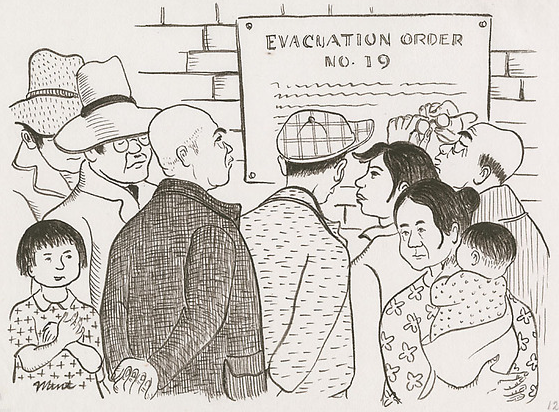 EVACUATION ORDER
NO. 19
Miné
12